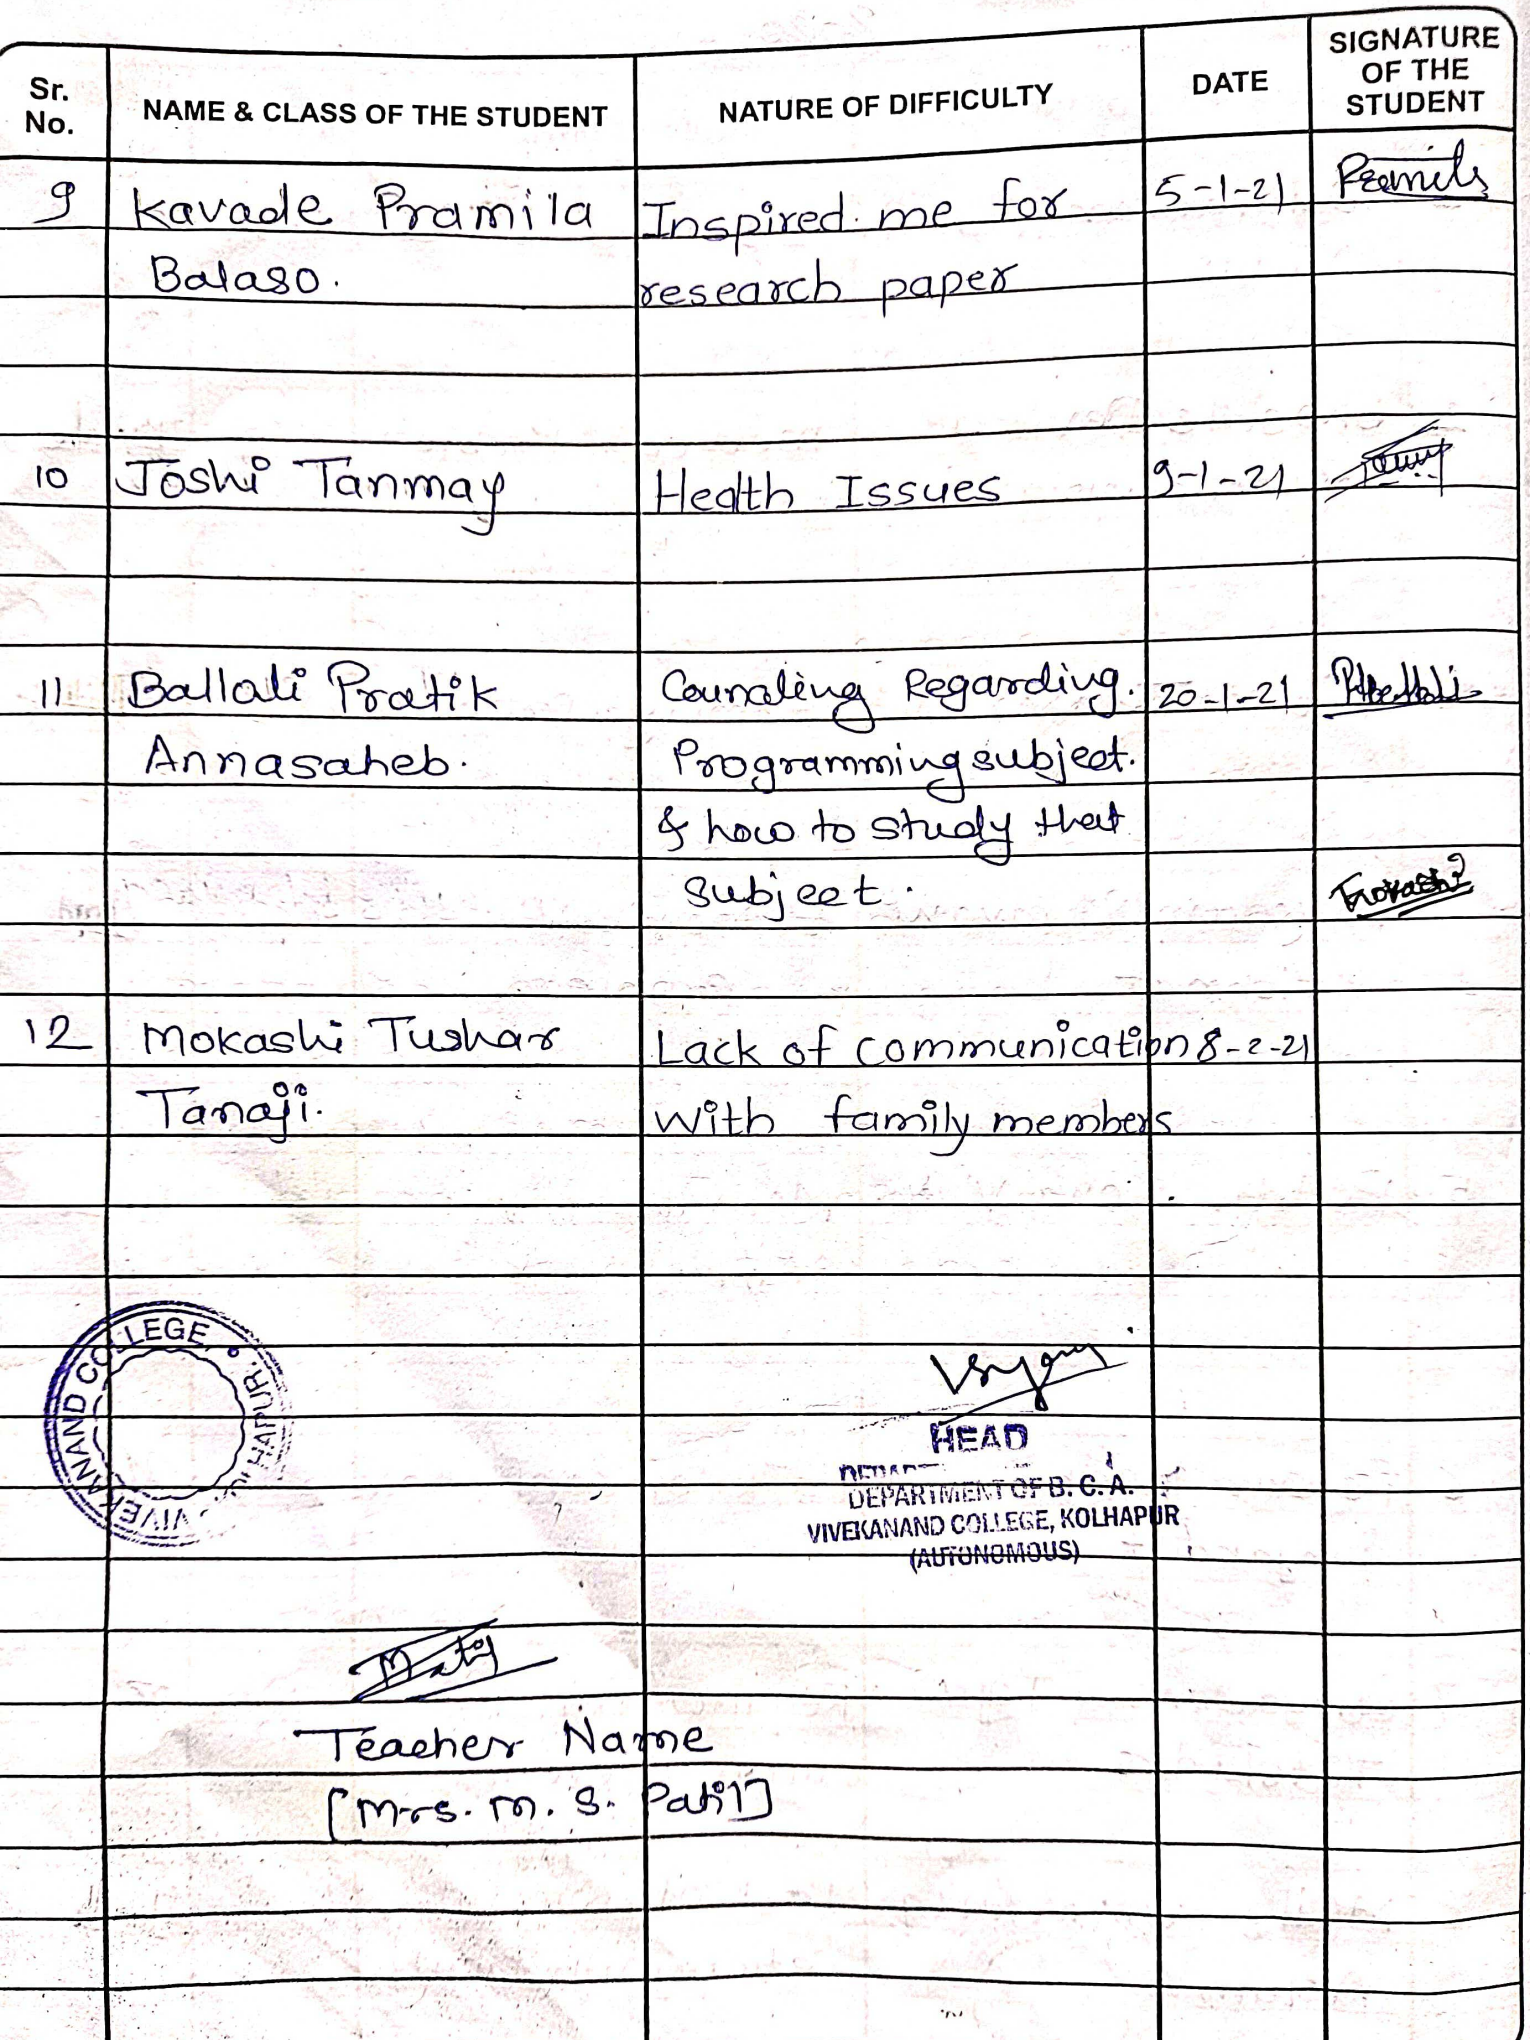 Sr. No.
NAME & CLASS OF THE STUDENT
NATURE OF DIFFICULTY
DATE
SIGNATURE OF THE STUDENT
9 Kavade Pramila Inspired me for 5-1-21
Balaso. research paper
10 Joshi Tanmay Health Issues 9-1-21
11 Ballali Pratik Counsling Regarding. 20-1-21
Annasaheb. Programming subject.
& how to study that
subject.
Tmokashi
12 Mokashi Tushar Lack of communication 8-2-21
Tanaji. with family members
VIVEKANAND COLLEGE, KOLHAPUR.
HEAD
DEPARTMENT OF B. C. A.
VIVEKANAND COLLEGE, KOLHAPUR
(AUTONOMOUS)
Teacher Name
[Mrs. M. S. Patil]